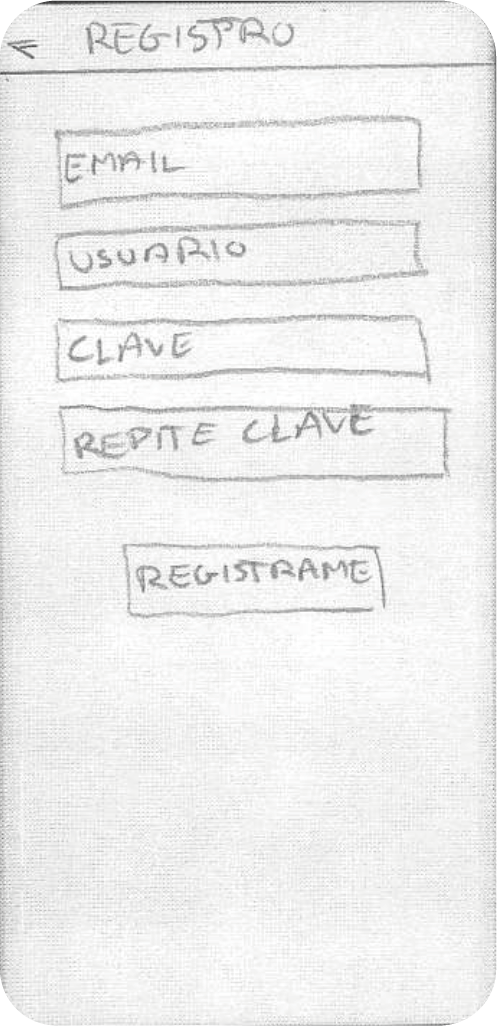 REGISTRO
EMAIL
USUARIO
CLAVE
REPITE CLAVE
REGISTRAME